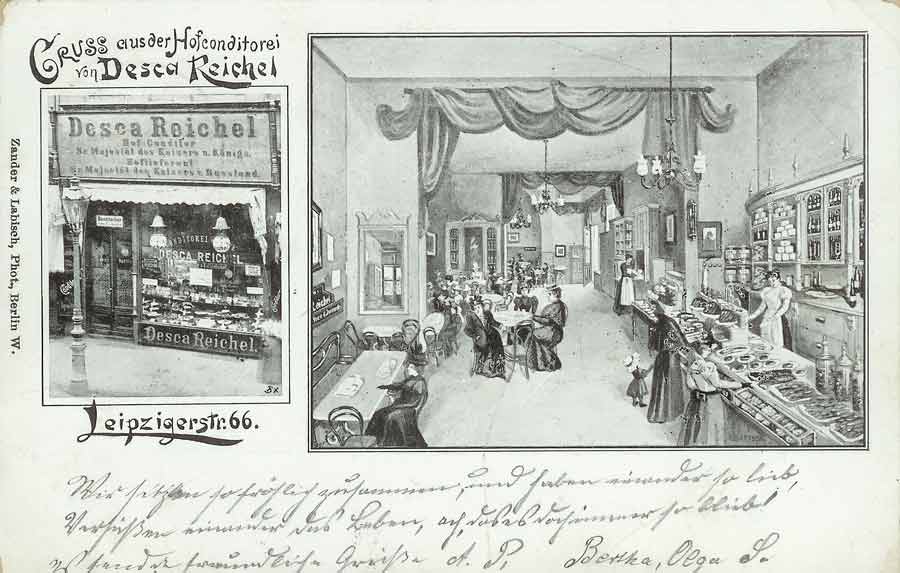 Gruss aus der Hofconditorei
von Desca Reichel
Desca Reichel
Hof-Conditor
Sr Majestät des Kaisers u. Königs.
Hoflieferant
Sr Majestät des Kaisers v. Russland.
CONDITOREI
DESCA REICHEL
Desca Reichel
Leipzigerstr. 66.
Zander & Labisch, Phot., Berlin W.
Wir sitzen so fröhlich zusammen, und haben einander so lieb,
Versüßen einander das Leben, ach, das es doch immer so bliebe
Es sendet freundliche Grüße A. P. Bertha, Olga S.